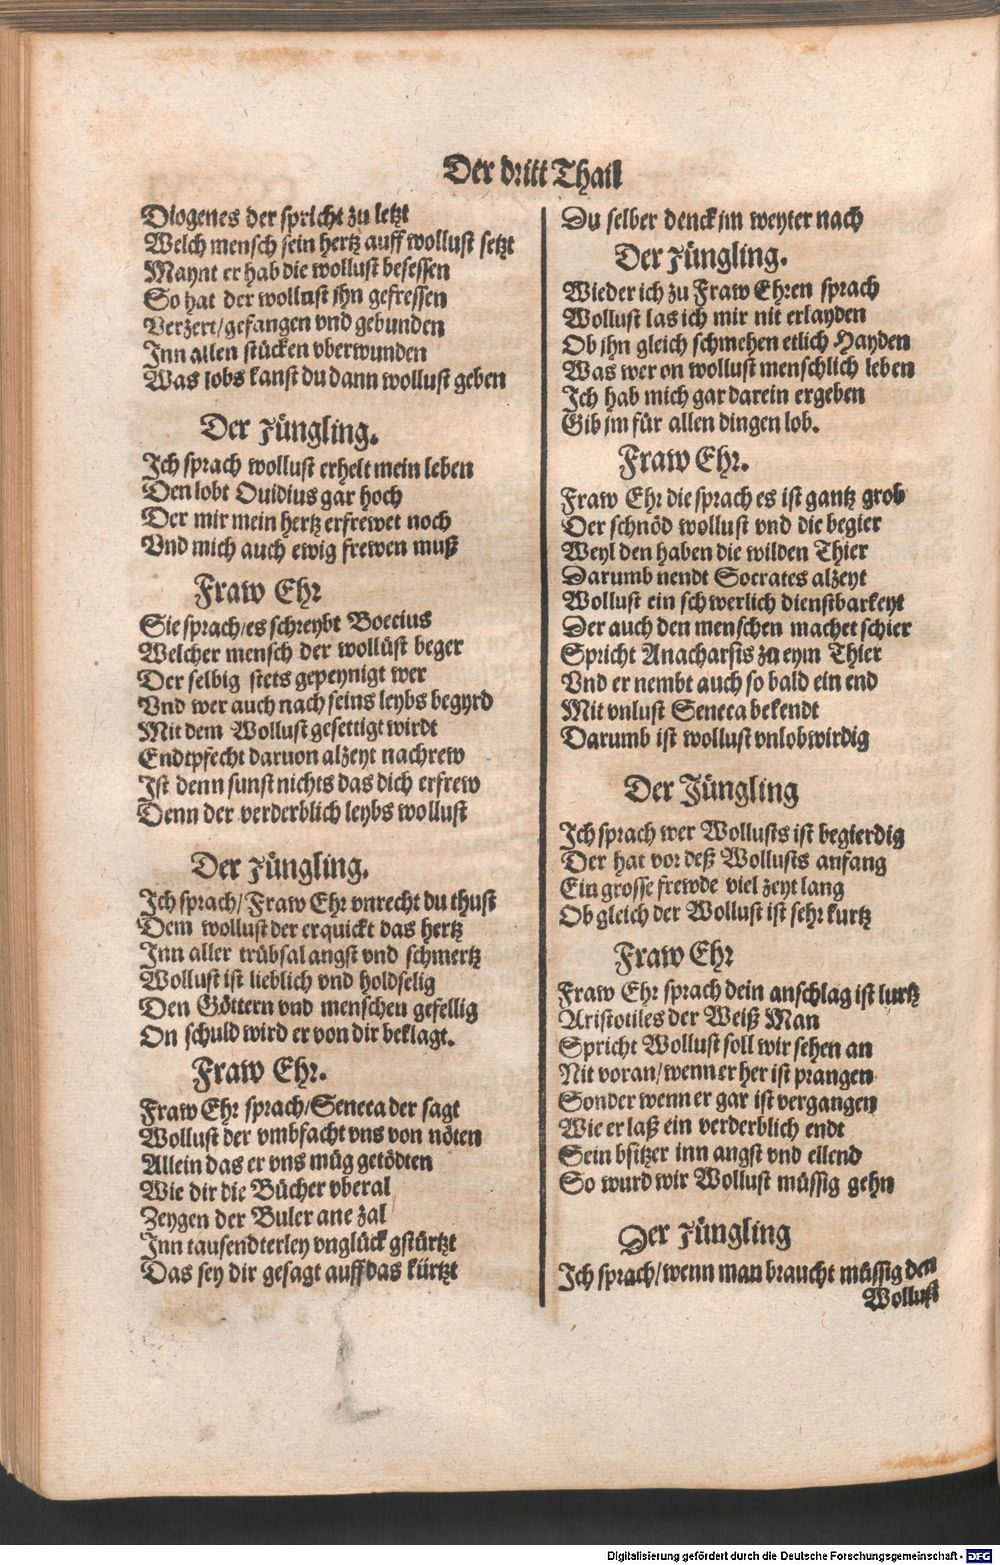 Der dritt Thail
Diogenes der spricht zu letzt
Welch mensch sein hertz auff wollust setzt
Maynt er hab die wollust besessen
So hat der wollust jhn gefressen
Verzert/gefangen vnd gebunden
Inn allen stücken vberwunden
Was lobs kanst du dann wollust geben
Der Jüngling.
Ich sprach wollust erhelt mein leben
Den lobt Ouidius gar hoch
Der mir mein hertz erfrewet noch
Vnd mich auch ewig frewen muß
Fraw Ehr
Sie sprach/es schreybt Boecius
Welcher mensch der wollüst beger
Der selbig stets gepeynigt wer
Vnd wer auch nach seins leybs begyrd
Mit dem Wollust gesettigt wirdt
Endtpfecht daruon alzeyt nachrew
Ist denn sunst nichts das dich erfrew
Denn der verderblich leybs wollust
Der Jüngling.
Ich sprach/Fraw Ehr vnrecht du thust
Dem wollust der erquickt das hertz
Inn aller trübsal angst vnd schmertz
Wollust ist lieblich vnd holdselig
Den Göttern vnd menschen gefellig
On schuld wird er von dir beklagt.
Fraw Ehr.
Fraw Ehr sprach/Seneca der sagt
Wollust der vmbfacht vns von nöten
Allein das er vns müg getödten
Wie dir die Bücher vberal
Zeygen der Buler ane zal
Inn tausendterley vnglück gstürtzt
Das sey dir gesagt auff das kürtzt
Du selber denck jm weyter nach
Der Jüngling.
Wieder ich zu Fraw Ehren sprach
Wollust las ich mir nit erlayden
Ob jhn gleich schmehen etlich Hayden
Was wer on wollust menschlich leben
Ich hab mich gar darein ergeben
Gib jm für allen dingen lob.
Fraw Ehr.
Fraw Ehr die sprach es ist gantz grob
Der schnöd wollust vnd die begier
Weyl den haben die wilden Thier
Darumb nendt Socrates alzeyt
Wollust ein schwerlich dienstbarkeyt
Der auch den menschen machet schier
Spricht Anacharsis zu eym Thier
Vnd er nembt auch so bald ein end
Mit vnlust Seneca bekendt
Darumb ist wollust vnlobwirdig
Der Jüngling
Ich sprach wer Wollusts ist begierdig
Der hat vor deß Wollusts anfang
Ein grosse frewde viel zeyt lang
Ob gleich der Wollust ist sehr kurtz
Fraw Ehr
Fraw Ehr sprach dein anschlag ist lurtz
Aristotiles der Weiß Man
Spricht Wollust soll wir sehen an
Nit voran/wenn er her ist prangen
Sonder wenn er gar ist vergangen
Wie er laß ein verderblich endt
Sein bsitzer inn angst vnd ellend
So wurd wir Wollust müssig gehn
Der Jüngling
Ich sprach/wenn man braucht müssig den
Wollust
Digitalisierung gefördert durch die Deutsche Forschungsgemeinschaft - DFG